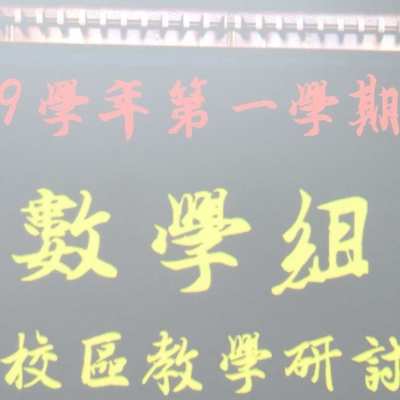 9學年第一學期
數學組
校區教學研討